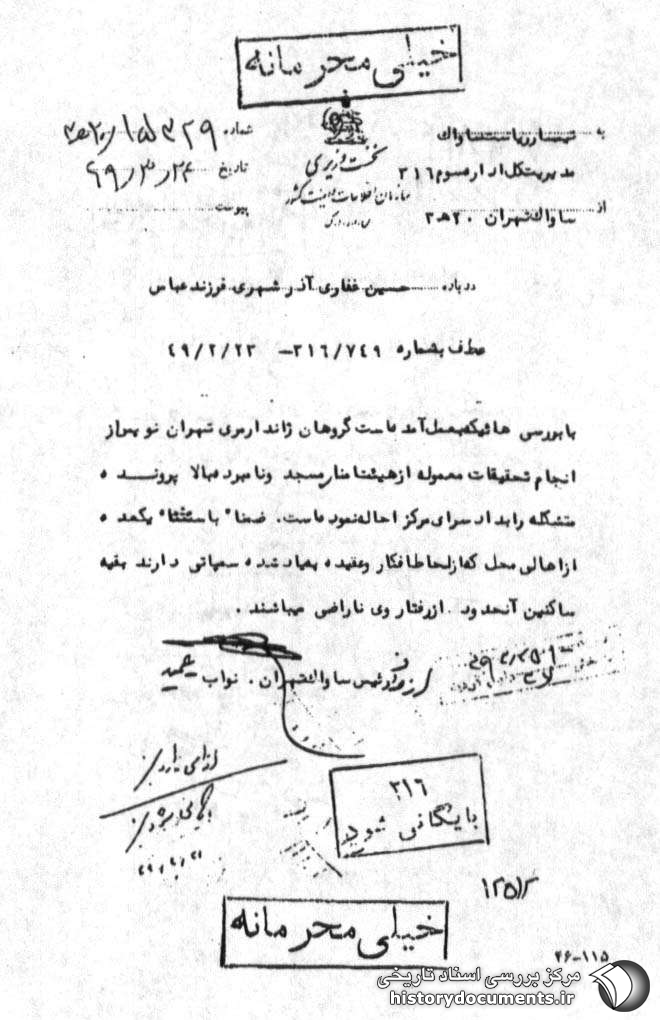 خیلی محرمانه
نخست وزیری
سازمان اطلاعات و امنیت کشور
به تیمسار ریاست ساواک
مدیریت کل اداره سوم ۳۱۶
از ساواک تهران ۲۰ ه‍ ۳
شماره ۱۵۳۲۹
تاریخ ۴۹/۳/۲۴
پیوست
درباره حسین غفاری آذرشهری فرزند عباس
عطف بشماره ۳۱۶/۷۴۹ - ۴۹/۲/۲۳
با بررسی هائیکه بعمل آمده است گروهان ژاندارمری تهران نو پس از
انجام تحقیقات معموله از هیئت امنا مسجد و نامبرده بالا پرونده
متشکله را بدادسرای مرکز احاله نموده است. ضمنا" باستثناء یکعده
از اهالی محل که از لحاظ افکار و عقیده بیاد شده سمپاتی دارند بقیه
ساکنین آنحدود از رفتار وی ناراضی میباشند.
از طرف رئیس ساواک تهران. نواب
۳۱۶
بایگانی شود
خیلی محرمانه
۴۶-۱۱۵
مرکز بررسی اسناد تاریخی
historydocuments.ir